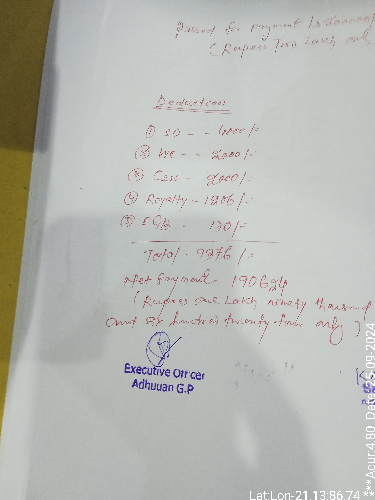 Passed for payment Rs 200000/
(Rupees Two Lakh only
Deductions
① SD - - 4000/-
② - - 2000/-
③ Cess - 2000/-
④ Royalty - 1206/-
⑤ - 170/-
Total - 9376/-
Net payment 190624/-
(Rupees one Lakh ninety thousand
and six hundred twenty four only)
Executive Officer
Adhuuan G.P
Lat:Lon-21.13:86.74 ***Acur:4.80 Date:25-09-2024